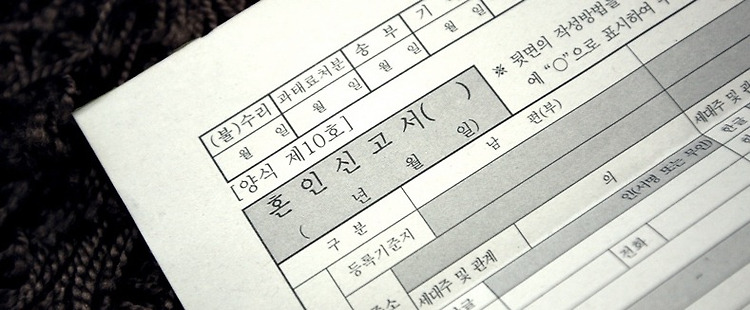 (불)수리 과태료처분 송 부 기
월 일 월 일 월 일 월 일
※ 뒷면의 작성방법을
에 "○"으로 표시하여
[양식 제10호]
혼 인 신 고 서( )
( 년 월 일)
구 분 남 편(부)
등록기준지
세대주 및 관계
의
인(서명 또는 무인)
전화
세대주 및 관
한글